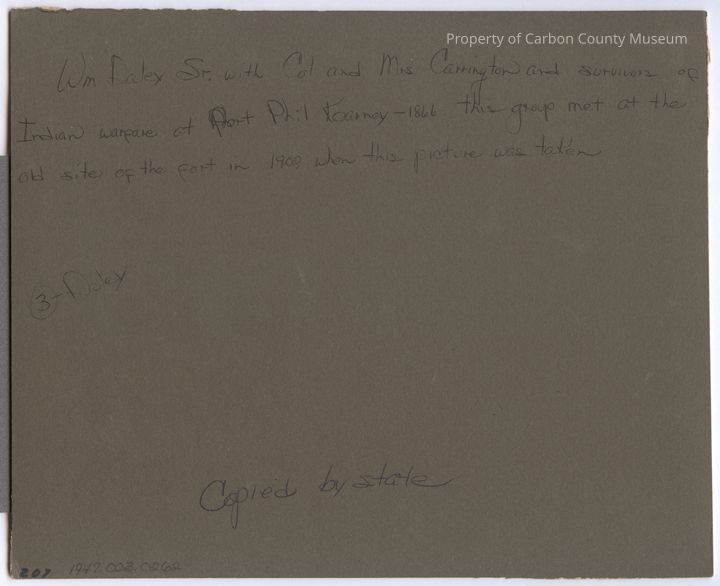 Property of Carbon County Museum
Wm Daley Sr. with Col and Mrs Carrington and survivors of
Indian warfare at Fort Phil Kearney - 1866. this group met at the
old site of the fort in 1908 when this picture was taken
3 - Daley
Copied by state
207 1947.003.0262